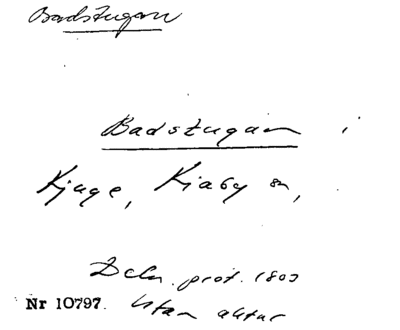 Badstugan
Badstugan i
Kjuge, Kiaby sn,
Deln. prot. 1803
Nr 10797. Utan aktnr